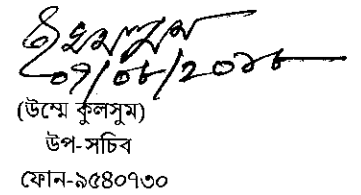 ০৭/০৮/২০১৮
(উম্মে কুলসুম)
উপ-সচিব
ফোন-৯৫৪০৭৩০